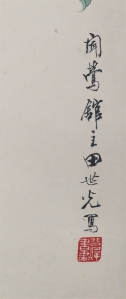 聞鶯舘主田世光寫